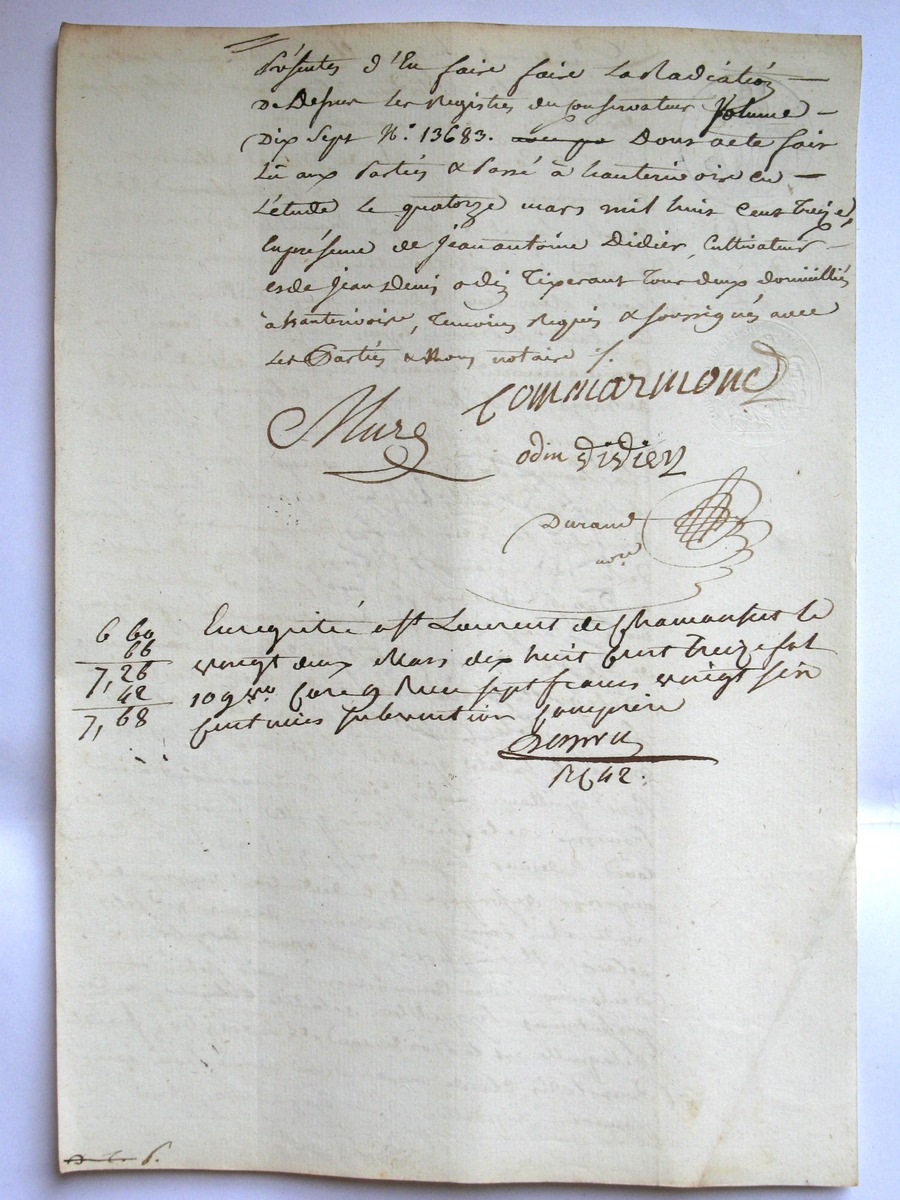 présentes d'En faire faire La Radiation
De Dessus les Registres du Conservateur Volume
Dix Sept N.° 13683. Dont acte fait
Lû aux Parties & Passé à hauterivoire en
L'étude le quatorze mars mil huit Cent treize,
En présence de jean antoine Didier, Cultivateur
et de jean denis odin Tixerant tous deux domiciliés
à hauterivoire, Temoins Requis & soussignés avec
Les Parties & Nous notaire ./.
Mure Commarmond
odin didier
Durand
nore
6 60
66
7,26
42
7,68
Enregistré à St Laurent de Chamousset le
vingt deux Mars dix huit Cent treize fol
109 vo Case 9 Reçu sept francs vingt six
Centimes subvention Comprise
R 42.